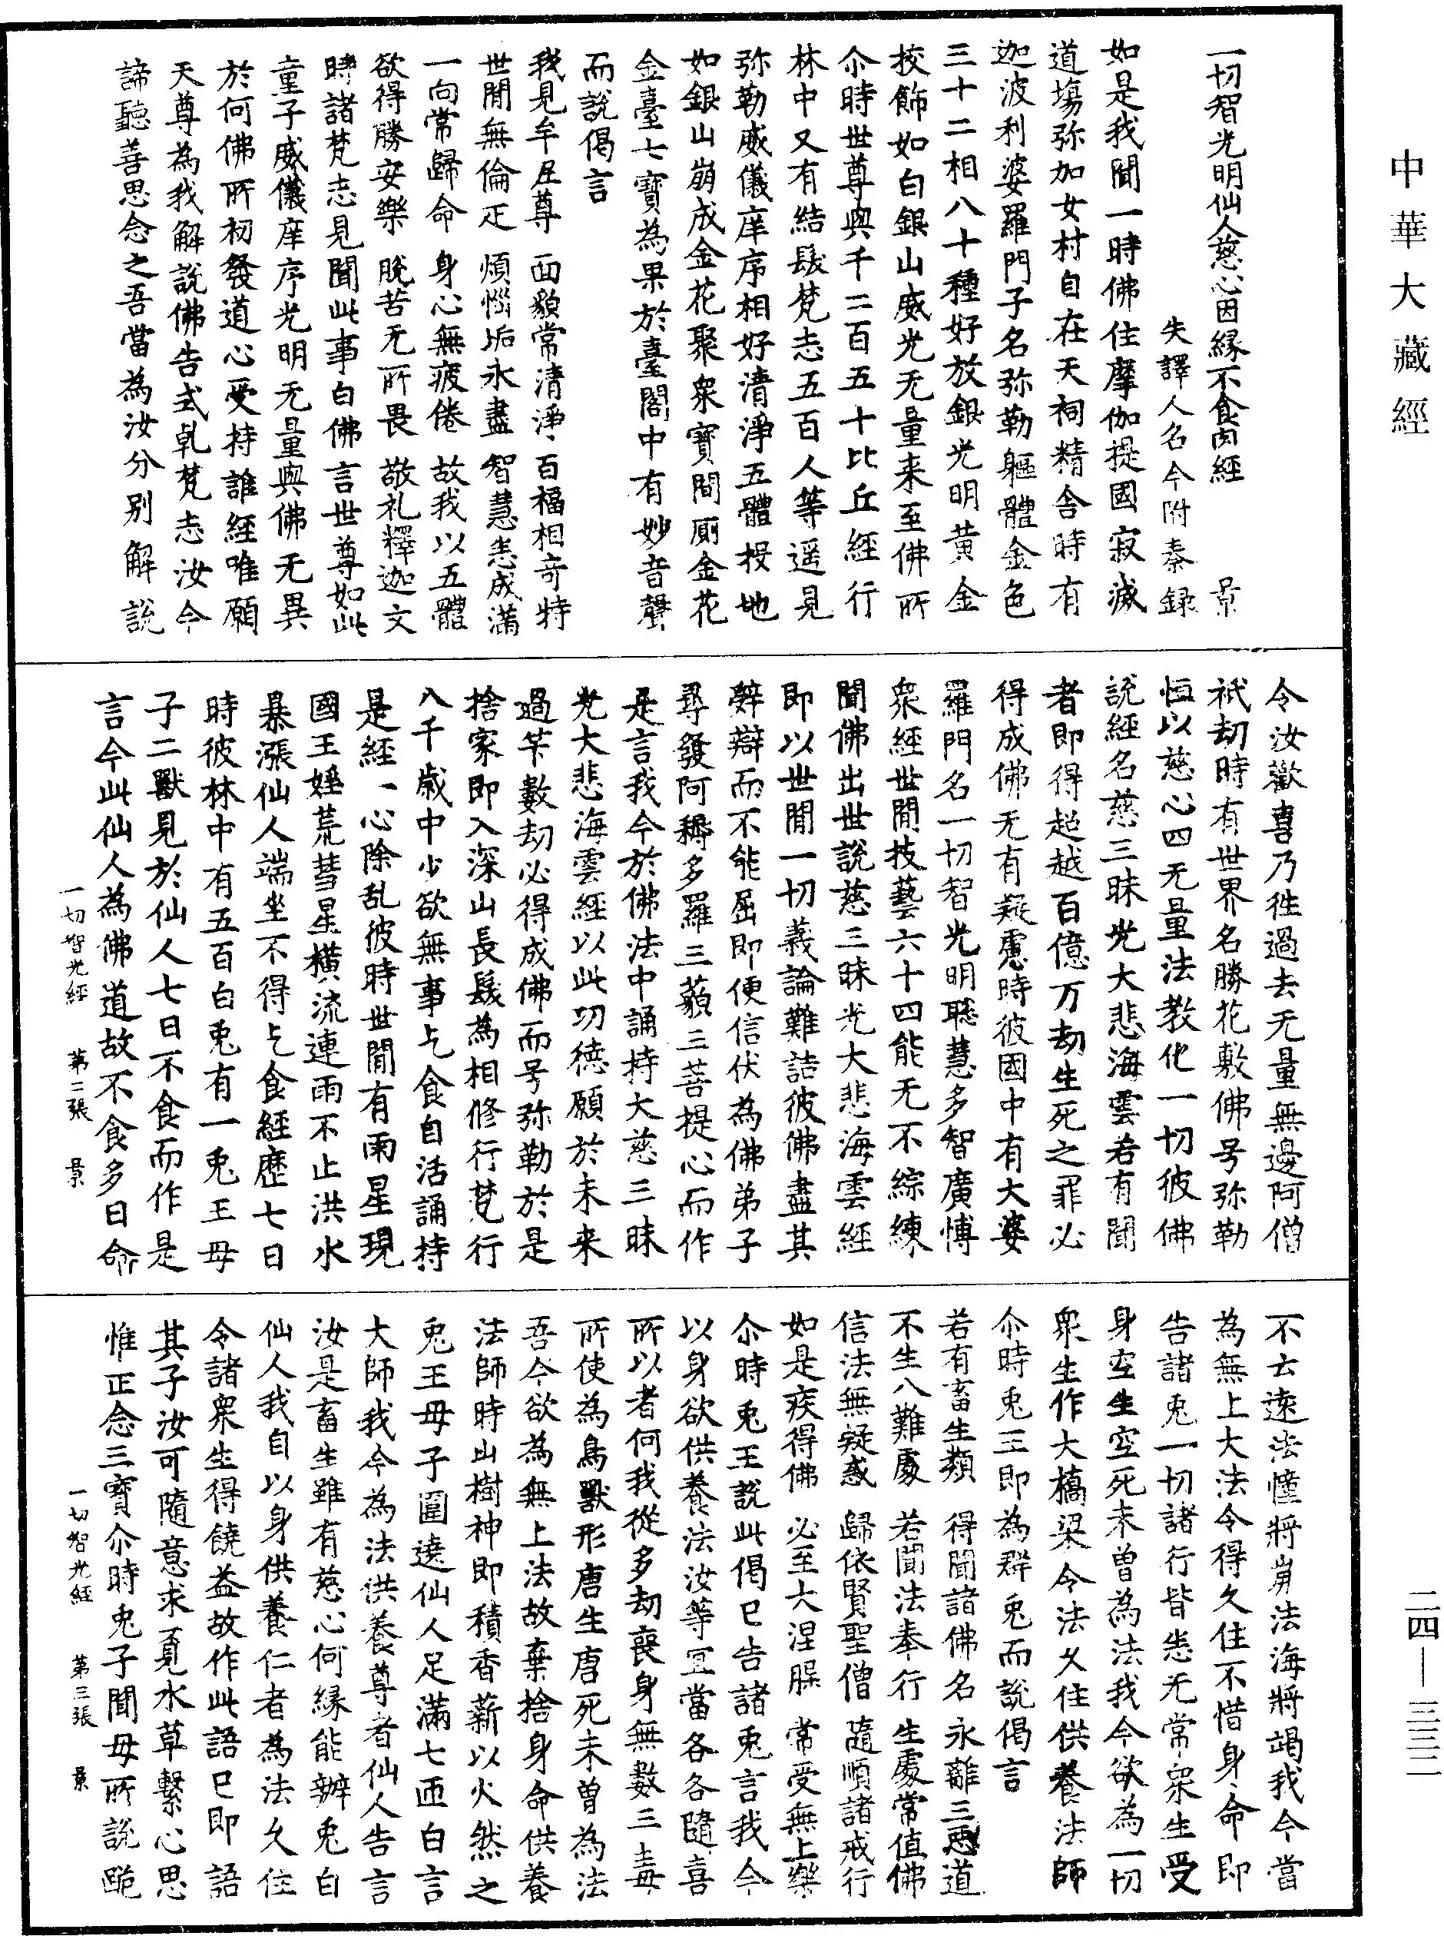 中華大藏經
一切智光明仙人慈心因縁不食肉經　景
失譯人名今附秦録
如是我聞一時佛住摩伽提國寂滅
道場弥加女村自在天祠精舎時有
迦波利婆羅門子名弥勒軀體金色
三十二相八十種好放銀光明黄金
校飾如白銀山威光无量来至佛所
尒時世尊與千二百五十比丘經行
林中又有結髮梵志五百人等遥見
弥勒威儀庠序相好清淨五體投地
如銀山崩成金花聚衆寶間厠金花
金臺七寶為果於臺閣中有妙音聲
而説偈言
我見牟尼尊　面貌常清淨　百福相竒特
世間無倫疋　煩惱垢永盡　智慧悉成滿
一向常歸命　身心無疲倦　故我以五體
欲得勝安樂　脱苦无所畏　敬礼釋迦文
時諸梵志見聞此事白佛言世尊如此
童子威儀庠序光明无量與佛无異
於何佛所初發道心受持誰經唯願
天尊為我解説佛告式乹梵志汝今
諦聽善思念之吾當為汝分别解説
令汝歡喜乃徃過去无量無邊阿僧
祇劫時有世界名勝花敷佛号弥勒
恒以慈心四无量法教化一切彼佛
説經名慈三昧光大悲海雲若有聞
者即得超越百億万劫生死之罪必
得成佛无有疑慮時彼國中有大婆
羅門名一切智光明聡慧多智廣博
衆經世間技藝六十四能无不綜練
聞佛出世説慈三昧光大悲海雲經
即以世間一切義論難詰彼佛盡其
辤辯而不能屈即便信伏為佛弟子
尋發阿耨多羅三藐三菩提心而作
是言我今於佛法中誦持大慈三昧
光大悲海雲經以此功徳願於未来
過筭數劫必得成佛而号弥勒於是
捨家即入深山長髮為相修行梵行
八千歳中少欲無事乞食自活誦持
是經一心除乱彼時世間有雨星現
國王婬荒彗星横流連雨不止洪水
暴漲仙人端坐不得乞食經歴七日
時彼林中有五百白兎有一兎王母
子二獸見於仙人七日不食而作是
言今此仙人為佛道故不食多日命
一切智光經　第二張　景
不去遠法幢將崩法海將竭我今當
為無上大法令得久住不惜身命即
告諸兎一切諸行皆悉无常衆生受
身空生空死未曽為法我今欲為一切
衆生作大橋梁令法久住供養法師
尒時兎王即為群兎而説偈言
若有畜生類　得聞諸佛名　永離三惡道
不生八難處　若聞法奉行　生處常值佛
信法無疑惑　歸依賢聖僧　隨順諸戒行
如是疾得佛　必至大涅槃　常受無上樂
尒時兎王説此偈已告諸兎言我今
以身欲供養法汝等宜當各各隨喜
所以者何我從多劫喪身無數三毒
所使為鳥獸形唐生唐死未曽為法
吾今欲為無上法故棄捨身命供養
法師時山樹神即積香薪以火然之
兎王母子圍遶仙人足滿七迊白言
大師我今為法供養尊者仙人告言
汝是畜生雖有慈心何縁能辦兎白
仙人我自以身供養仁者為法久住
令諸衆生得饒益故作此語已即語
其子汝可隨意求覓水草繫心思
惟正念三寶尒時兎子聞母所説跪
一切智光經　第三張　景
二四—三三二